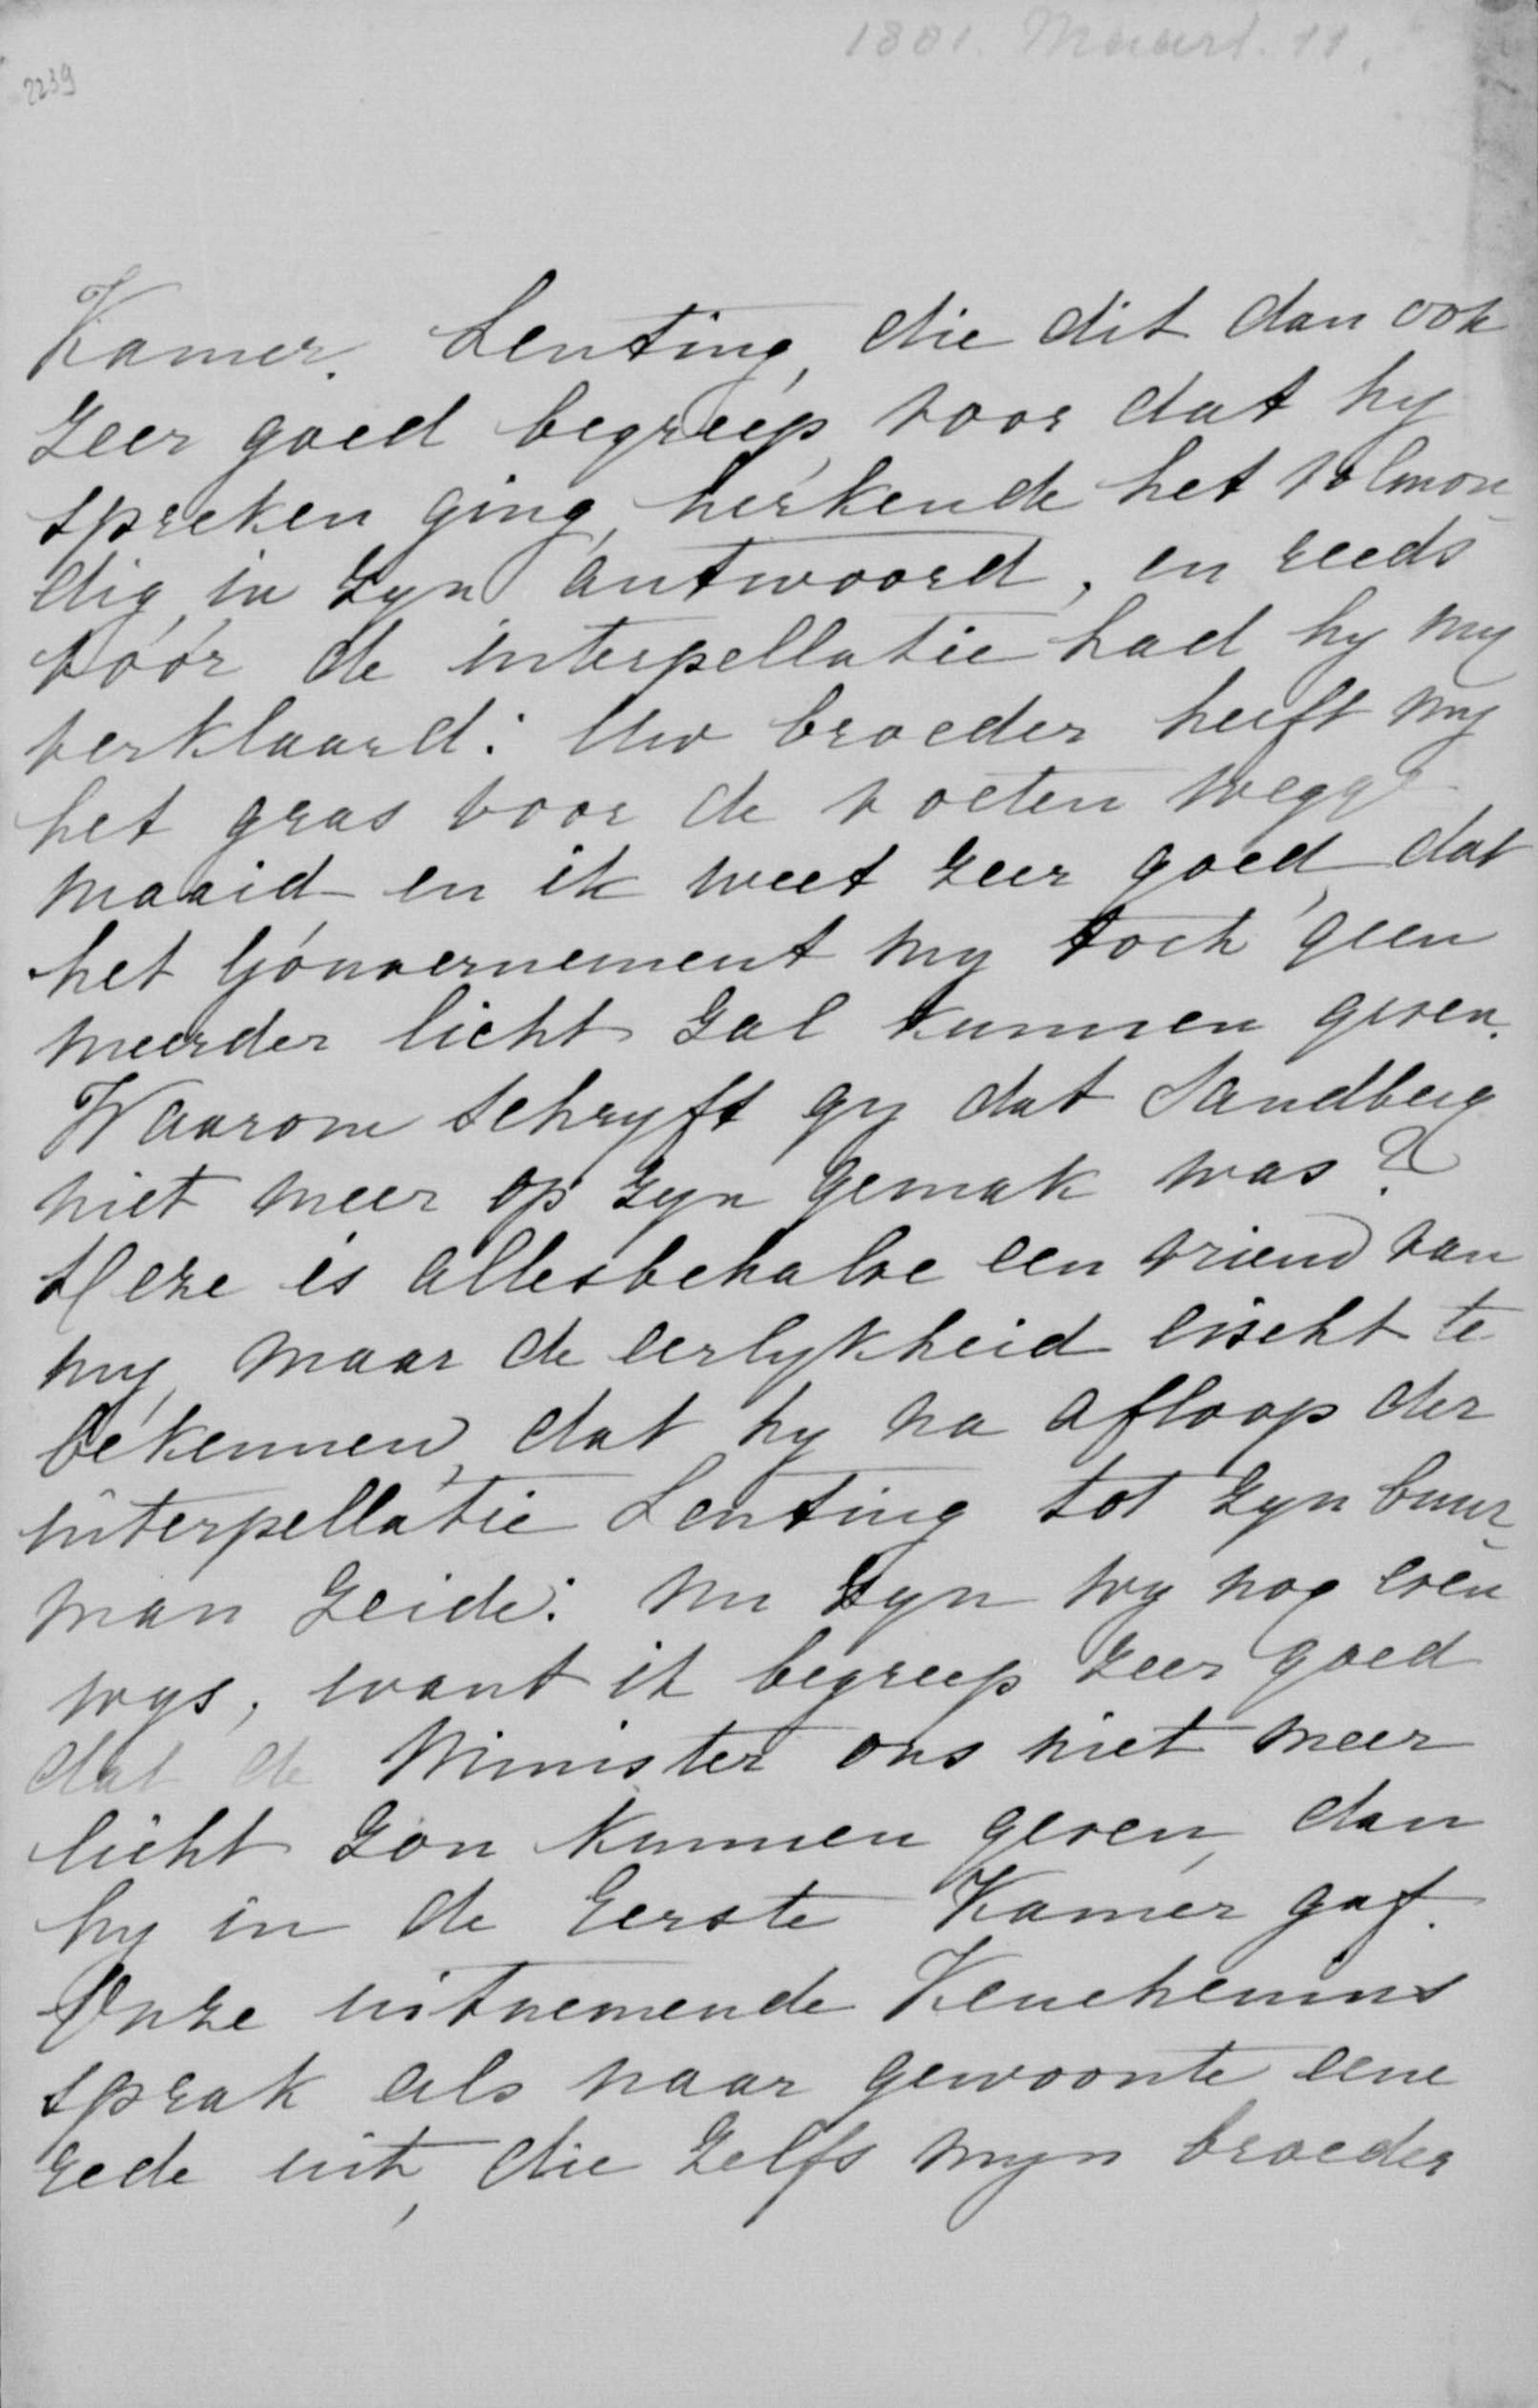 1881. Maart. 11.
2239
Kamer. Lenting, die dit dan ook
zeer goed begreep, voor dat hy
spreken ging, herkende het volmon-
dig in zyn antwoord, en reeds
vóór de interpellatie had hy my
verklaard: Uw broeder heeft my
het gras voor de voeten wegge-
maaid en ik weet zeer goed, dat
het Gouvernement my toch geen
meerder licht zal kunnen geven.
Waarom schryft gy dat Sandberg
niet meer op zyn gemak was?
Deze is allesbehalve een vriend van
my, maar de eerlykheid eischt te
bekennen, dat hy na afloop der
interpellatie Lenting tot zyn buur-
man zeide: nu zyn wy nog even
wys, want ik begreep zeer goed
dat de Minister ons niet meer
licht zou kunnen geven, dan
hy in de Eerste Kamer gaf.
Onze uitnemende Keuchenius
sprak als naar gewoonte eene
rede uit, die zelfs myn broeder